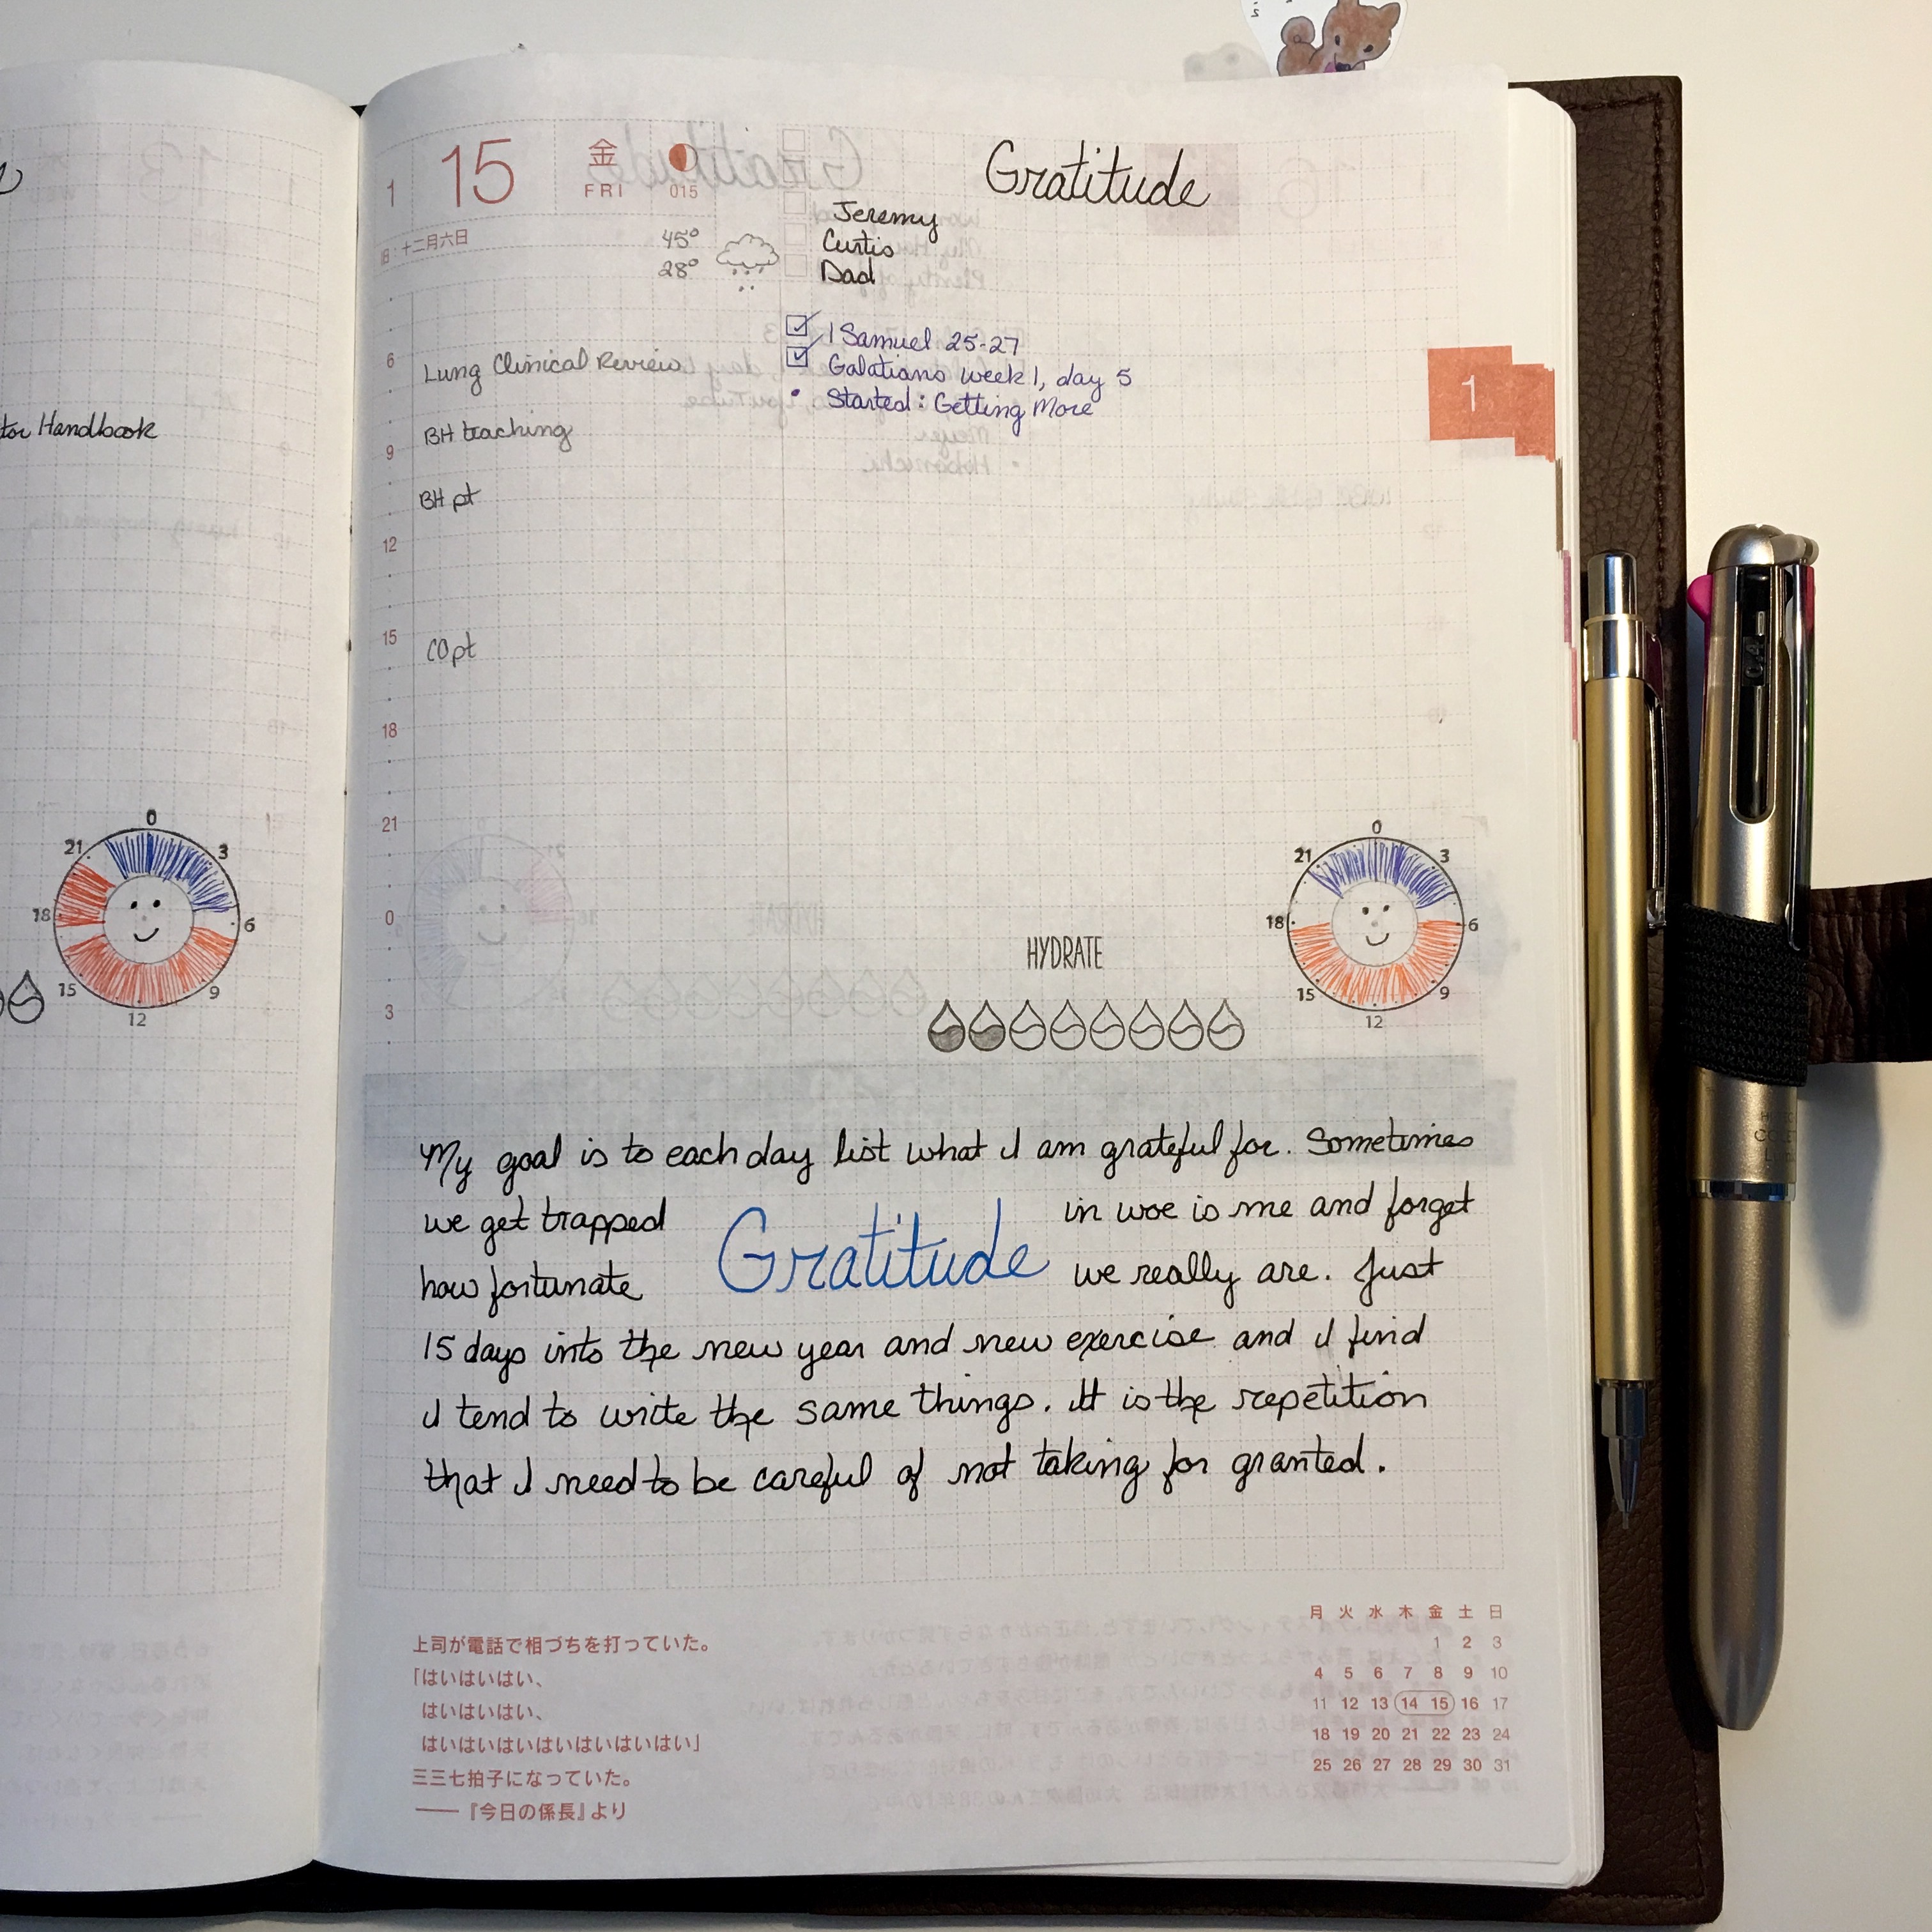 tor Handbook
0
3
6
9
12
15
18
21
1 15 金 FRI 015
旧・十二月六日
45°
28°
Gratitude
Jeremy
Curtis
Dad
1 Samuel 25-27
Galatians week 1, day 5
Started: Getting More
1
6
Lung Clinical Review
BH teaching
9
BH pt
12
15
CO pt
18
21
0
3
HYDRATE
0
3
6
9
12
15
18
21
My goal is to each day list what I am grateful for. Sometimes
we get trapped in woe is me and forget
Gratitude
how fortunate we really are. Just
15 days into the new year and new exercise and I find
I tend to write the same things. It is the repetition
that I need to be careful of not taking for granted.
上司が電話で相づちを打っていた。
「はいはいはい、
はいはいはい、
はいはいはいはいはいはいはい」
三三七拍子になっていた。
——『今日の係長』より
月 火 水 木 金 土 日
1 2 3
4 5 6 7 8 9 10
11 12 13 14 15 16 17
18 19 20 21 22 23 24
25 26 27 28 29 30 31
0.4